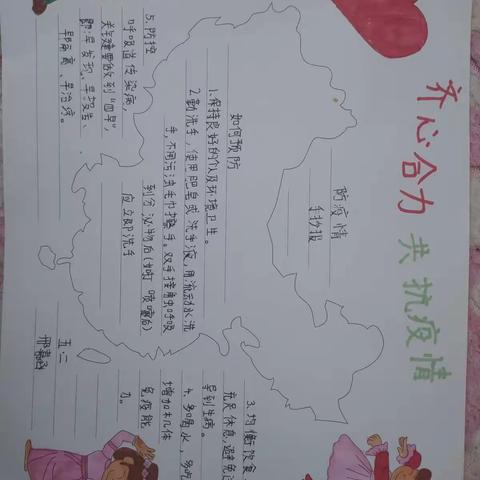 齐心合力 共抗疫情
防疫情
手抄报
如何预防
1.保持良好的个人及环境卫生。
2.勤洗手,使用肥皂或洗手液,用流动水洗
手,不用污浊毛巾擦手。双手接触呼吸
到分泌物后(如 喷嚏后)
应立即洗手
3.均衡饮食
充足休息,避免
导到生病。
4.多喝水,多吃
增加机体
免疫能
力。
5.防控
呼吸道传染病,
关键要做到"四早",
即:早发现、早报告、
早隔离、早治疗。
五.二